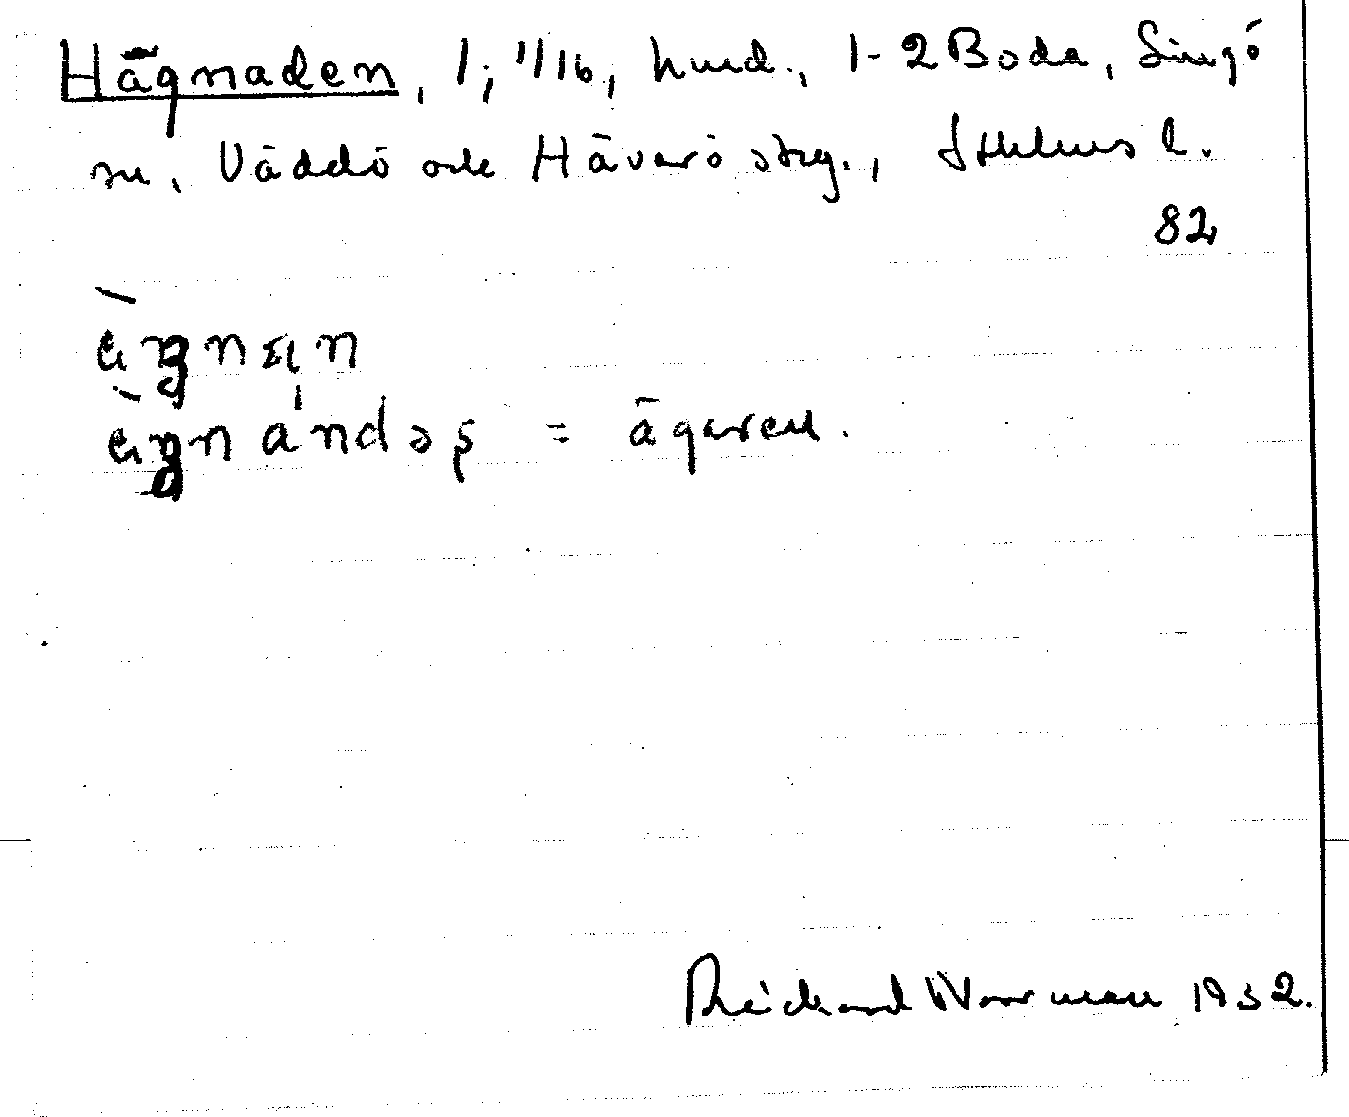 Hägnaden, 1; 1/16, hmd., 1-2 Boda, Singö
sn, Väddö och Häverö skg., Sthlms l.
82
= ägaren.
Richard Norrman 1932.